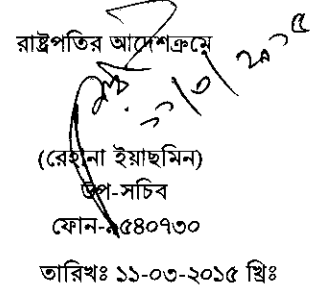 রাষ্ট্রপতির আদেশক্রমে
(রেহানা ইয়াছমিন)
উপ-সচিব
ফোন-৯৫৪০৭৩০
তারিখঃ ১১-০৩-২০১৫ খ্রিঃ